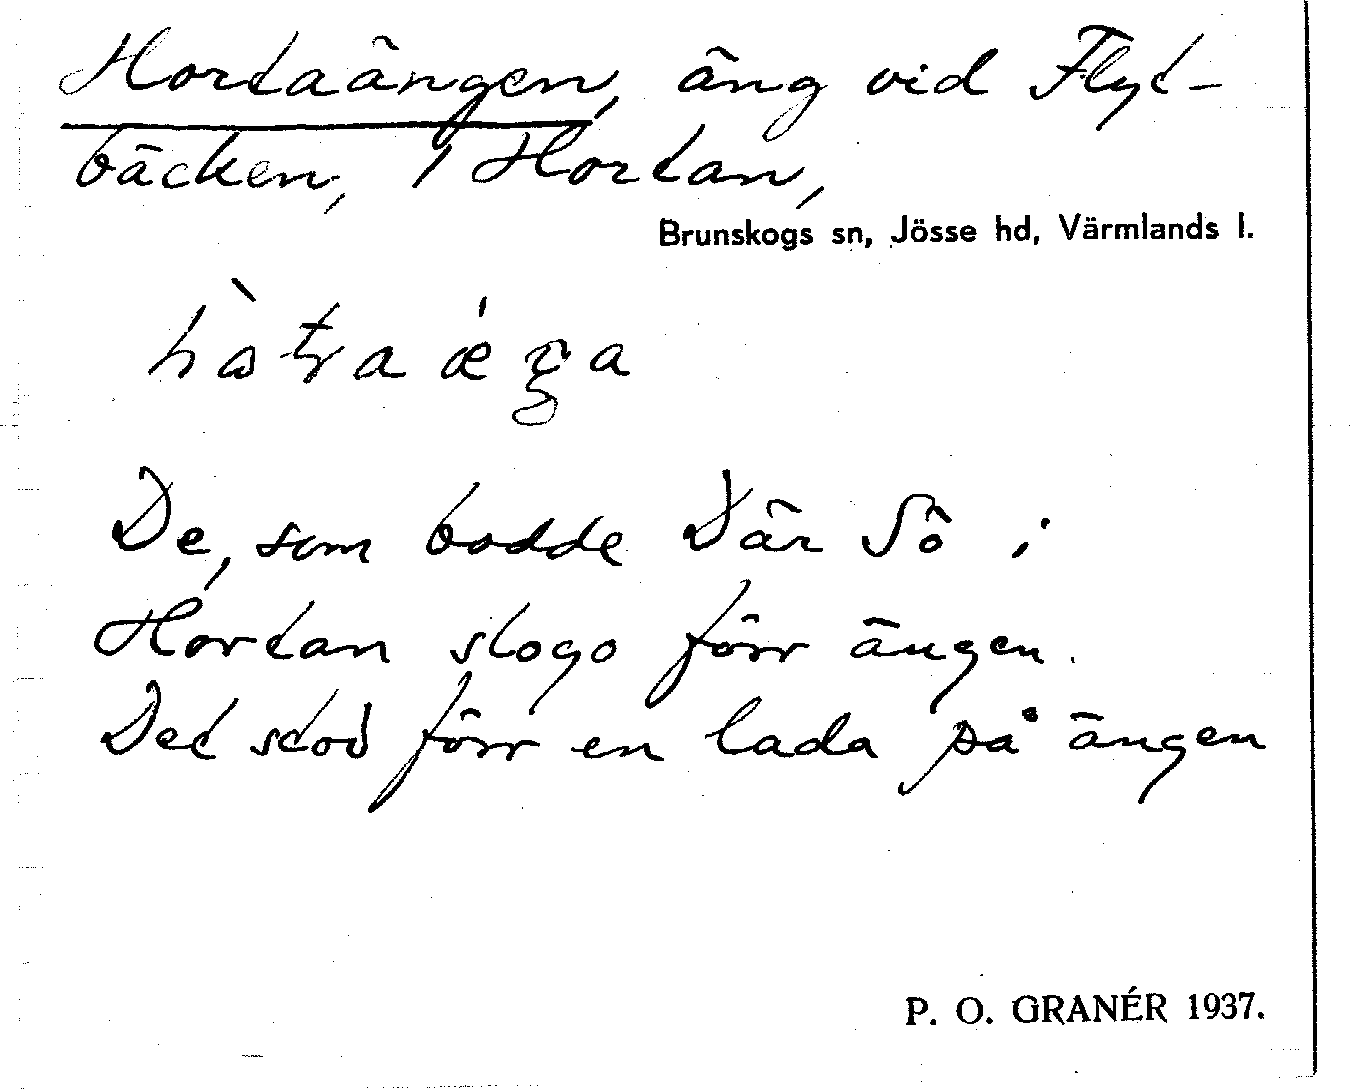 Hortaängen, äng vid Flyt-
bäcken, 1 Hortan,
Brunskogs sn, Jösse hd, Värmlands l.
De, som bodde där Sö i
Hortan slogo förr ängen.
Det stod förr en lada på ängen
P. O. GRANÉR 1937.